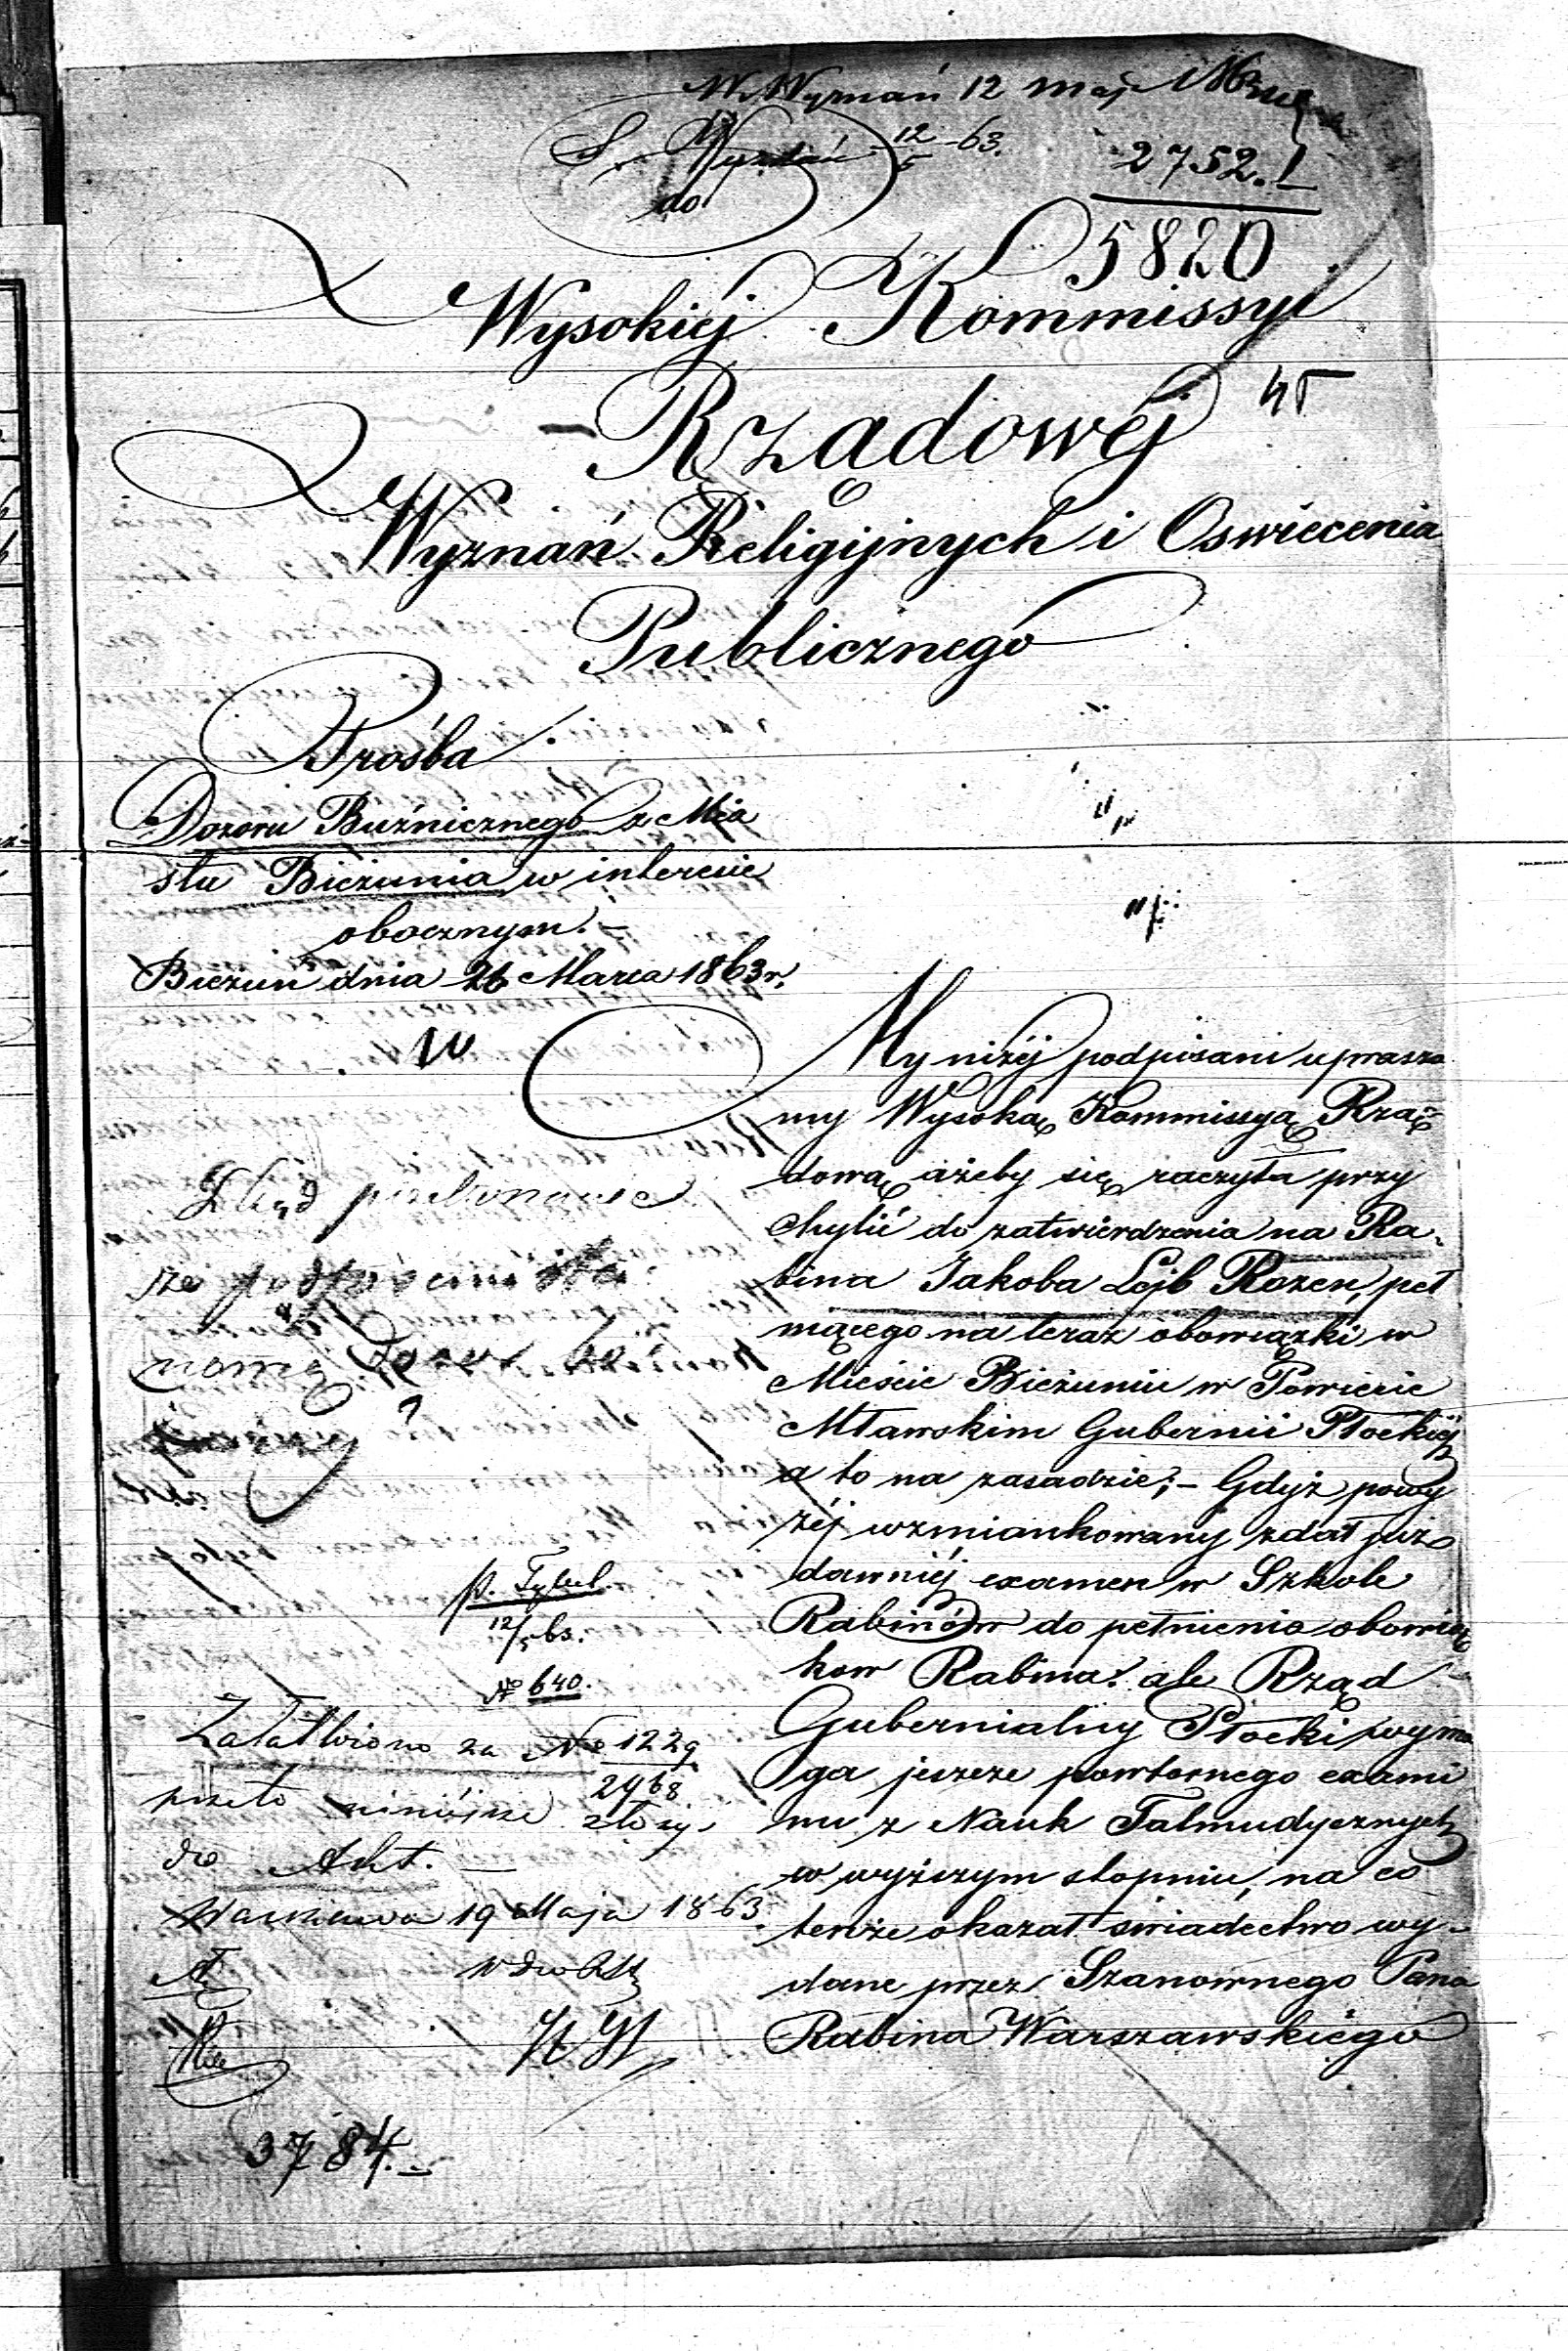 W. Wyznań 12 maj
S. Wyznań 12/5 - 63.
2752. I
do
5820
Wysokiéj Kommissyi
Rządowéj
Wyznań Religijnych i Oswiecenia
Publicznego
Prośba
Dozoru Buźnicznego z Mia
sta Bieżunia w interesie
obocznym. -
Bieżuń dnia 26 Marca 1863 r.
My niżéj podpisani uprasza
my Wysoką Kommissyą Rzą-
dową ażeby się raczyła przy
chylić do zatwierdzenia na Ra-
bina Jakoba Lejb Rozen, peł
niącego na teraz obowiązki w
Mieście Bieżuniu w Powiecie
Mławskim Gubernii Płockiéj
a to na zasadzie; - Gdyż powy
żéj wzmiankowany zdał już
dawniéj examen w Szkole
Rabinów do pełnienia obowiąz
kow Rabina. ale Rząd
Gubernialny Płocki wyma
ga jeszcze powtornego exami
nu z Nauk Talmudycznych
w wyższym stopniu, na co
tenże okazał swiadectwo wy-
dane przez Szanownego Pana
Rabina Warszawskiégo
Zkąd
że podpisani są
?
p. Tykel.
12/5 63.
№ 640.
Załatwiono za No 1229
2968
przeto niniéjsze złożyć
do Akt. —
Warszawa 19 Maja 1863.
3784. -